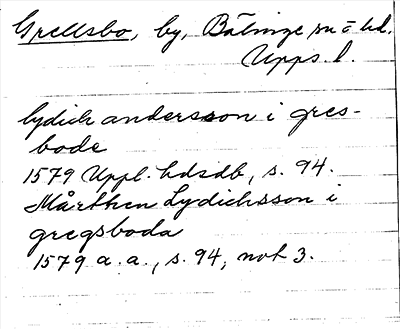 Grellsbo, by, Bälinge sn o hd.
Upps. l.
lydich andersson i gres-
bode
1579 Uppl. hdsdb, s. 94.
Mårthen Lydichsson i
gregsboda
1579 a. a., s. 94, not 3.